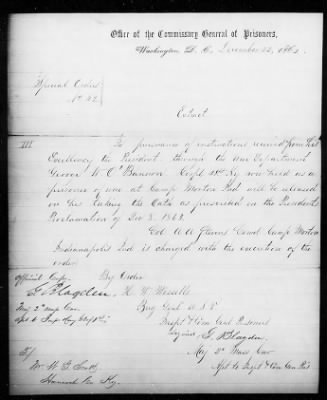 Office of the Commissary General of Prisoners,
Washington D. C. December 22, 1864.
Special Orders
No 42
Extract
III In pursuance of instructions received from His
Excellency the President through the War Department
Grover W. O'Bannon Corpl Ky now held as a
prisoner of war at Camp Morton Ind will be released
on his taking the Oath as prescribed in the Presidents
Proclamation of Dec 8. 1863.
Col A A Stevens Comd Camp Morton
Indianapolis Ind is charged with the execution of the
order
Official Copy By Order
G. Blagden H. W. Wessells
Maj 2d Mass Cav Brig Genl U S V
Inspt & Com Genl Prisoners
signed G. Blagden
Maj 2d Mass Cav
Asst to Inspt & Com Gen Pris
To/
Mr W. G.
Ky.